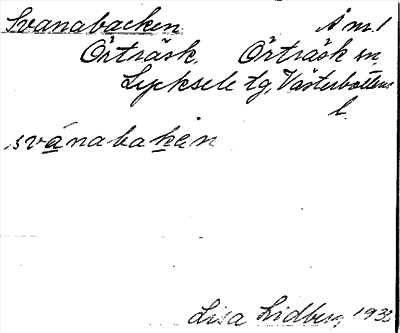 Svanabacken. Å m. 1
Örträsk, Örträsk sn,
Lycksele tg, Västerbottens
l.
svánabakàn
Lisa Lidberg 193